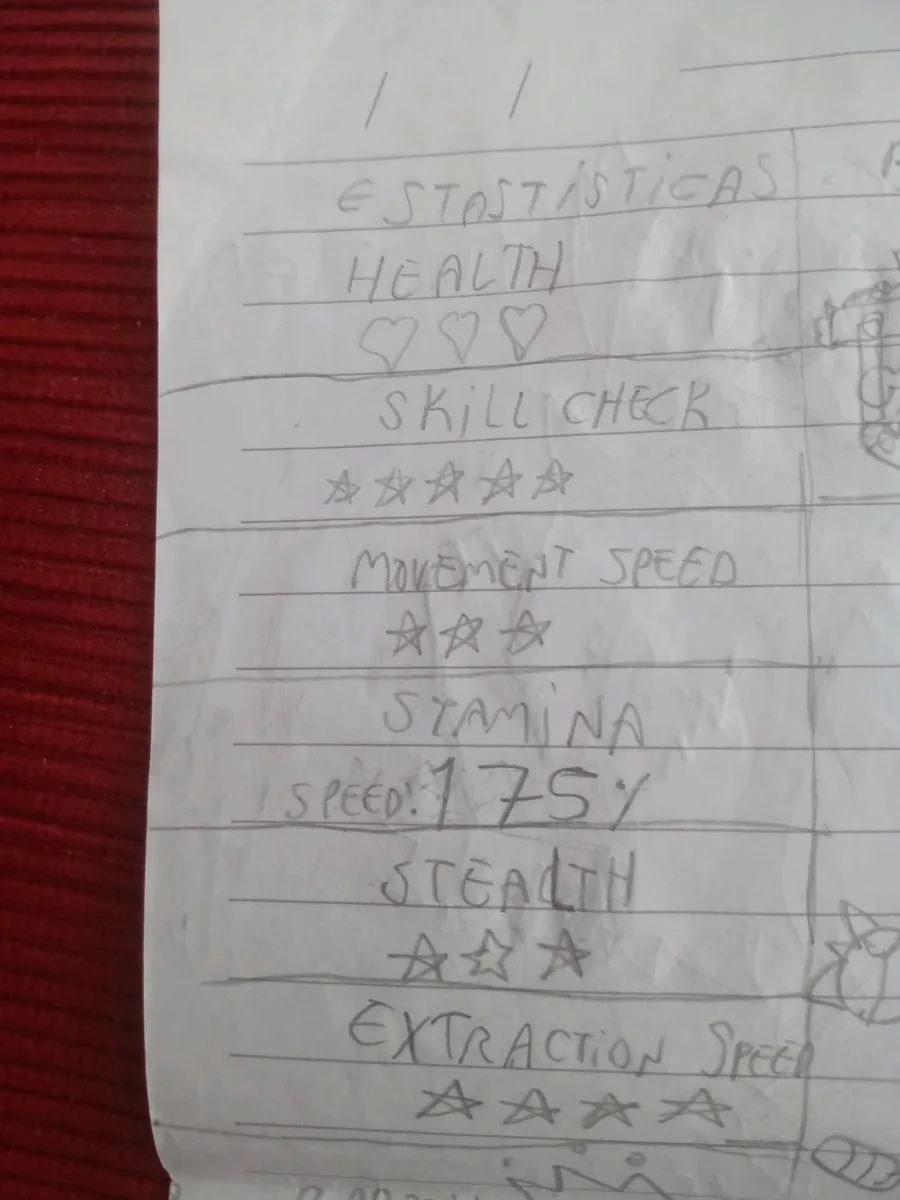 / /
ESTASTÍSTICAS
HEALTH
♡ ♡ ♡
SKILL CHECK
☆ ☆ ☆ ☆ ☆
MOVEMENT SPEED
☆ ☆ ☆
STAMINA
SPEED: 175%
STEALTH
☆ ☆ ☆
EXTRACTION SPEED
☆ ☆ ☆ ☆